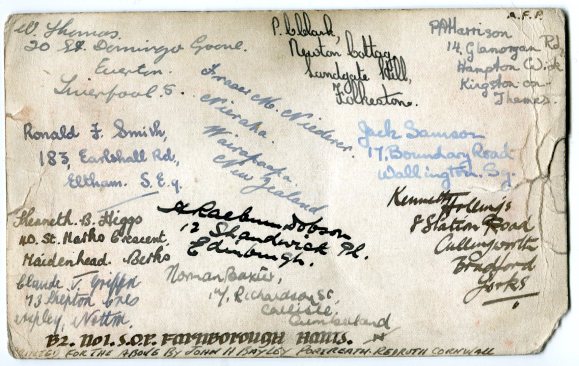 W. Thomas.
20 St. Domingo Grove.
Everton.
Liverpool. 5.
P. C. Clark,
Newton Cottage,
Sandgate Hill,
Folkestone.
R.F.P.
PA Harrison
14, Glamorgan Rd,
Hampton Wick
Kingston on
Thames.
M. Niederer.
Nieraha.
Wairarapa.
New Zealand
Ronald F. Smith,
183, Earlshall Rd,
Eltham. S.E.9.
Jack Samson
17, Boundary Road
Wallington. Sy.
Kenneth Hollings
8 Station Road
Cullingworth
Bradford
Yorks
B. Higgs
40. St. Marks Crescent,
Maidenhead. Berks
A Raeburn Dobson
12 Shandwick Pl.
Edinburgh.
Claude V. Griffin
73 Shipton Cres
Notton.
Norman Baxter,
17, Richardson St,
Carlisle,
Cumberland
B2. NO1. S.O.P. FARNBOROUGH HANTS.
FOR THE ABOVE BY JOHN H BAYLEY PORTREATH REDRUTH CORNWALL